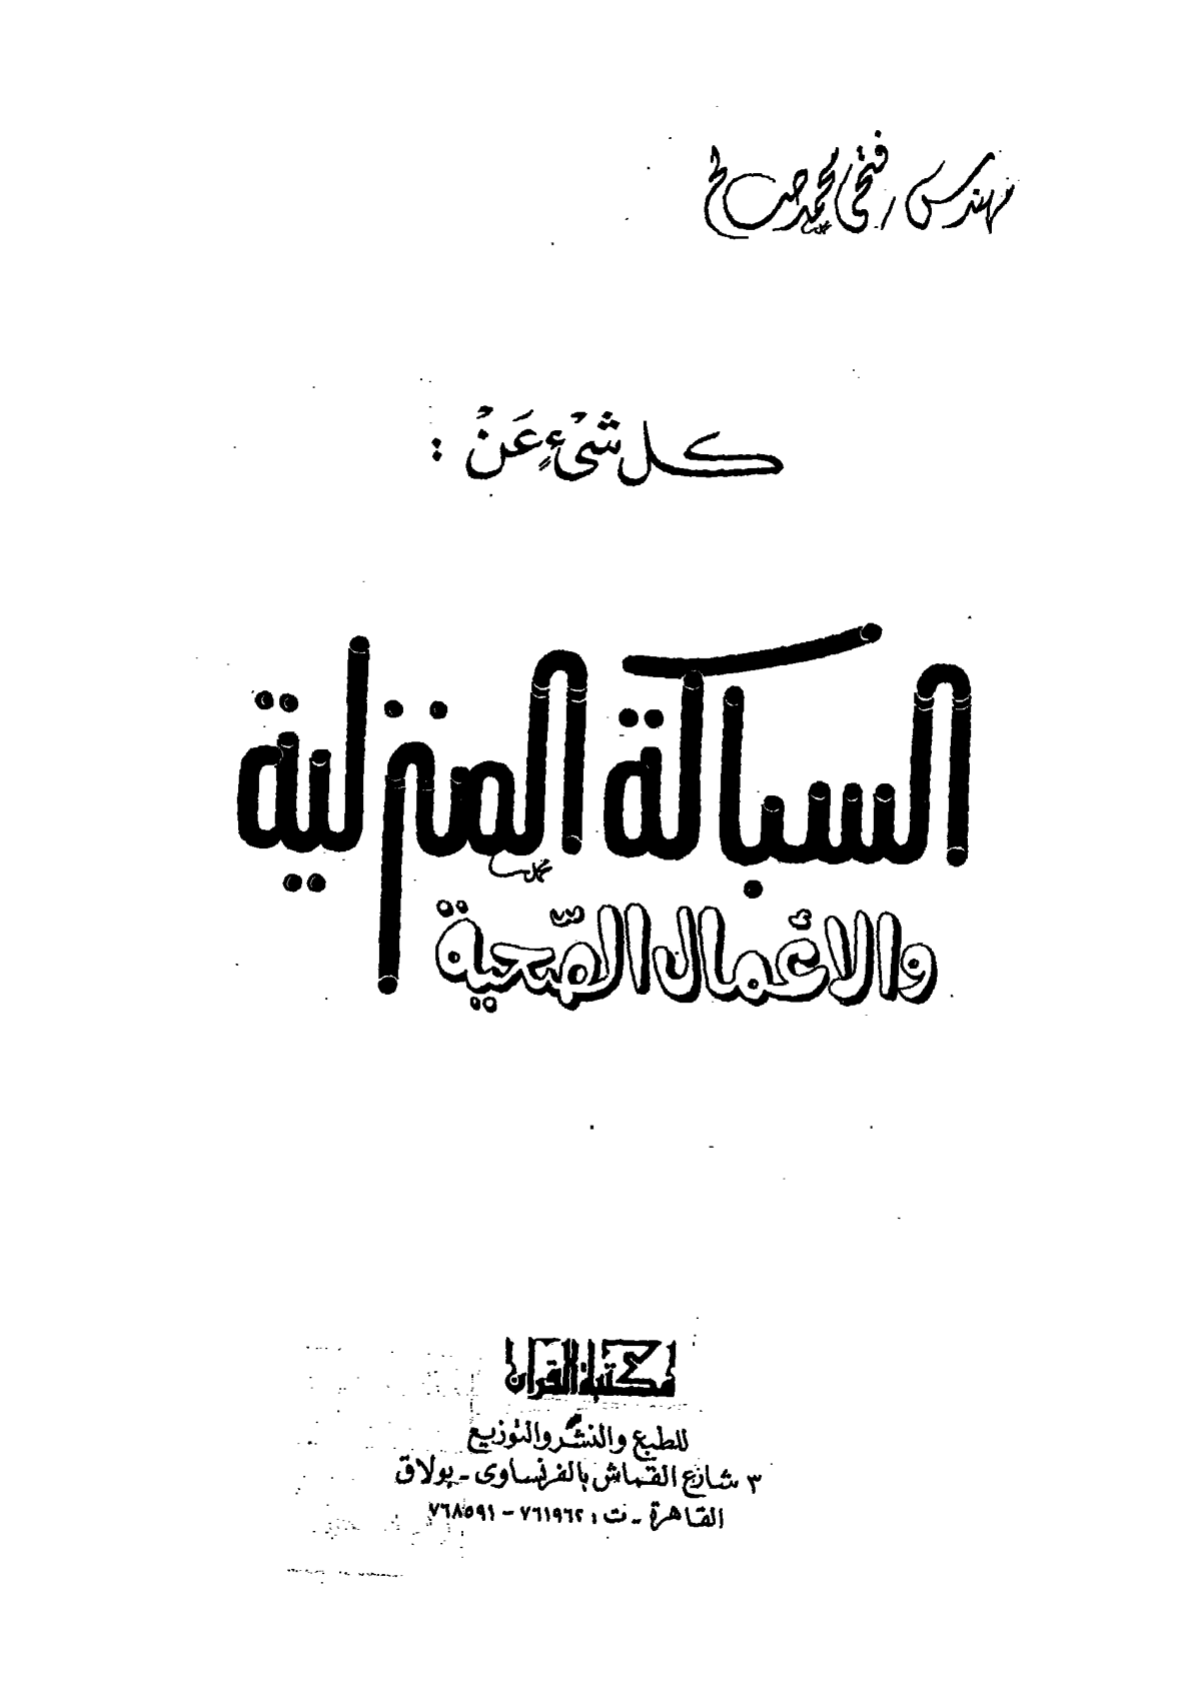 مهندس / فتحى محمد صالح
كل شىْءٍ عَنْ :
السباكة المنزلية
والأعمال الصّحية
مكتبة القرآن
للطبع والنشر والتوزيع
٣ شارع القماش بالفرنساوى - بولاق
القاهرة - ت : ٧٦١٩٦٢ - ٧٦٨٥٩١